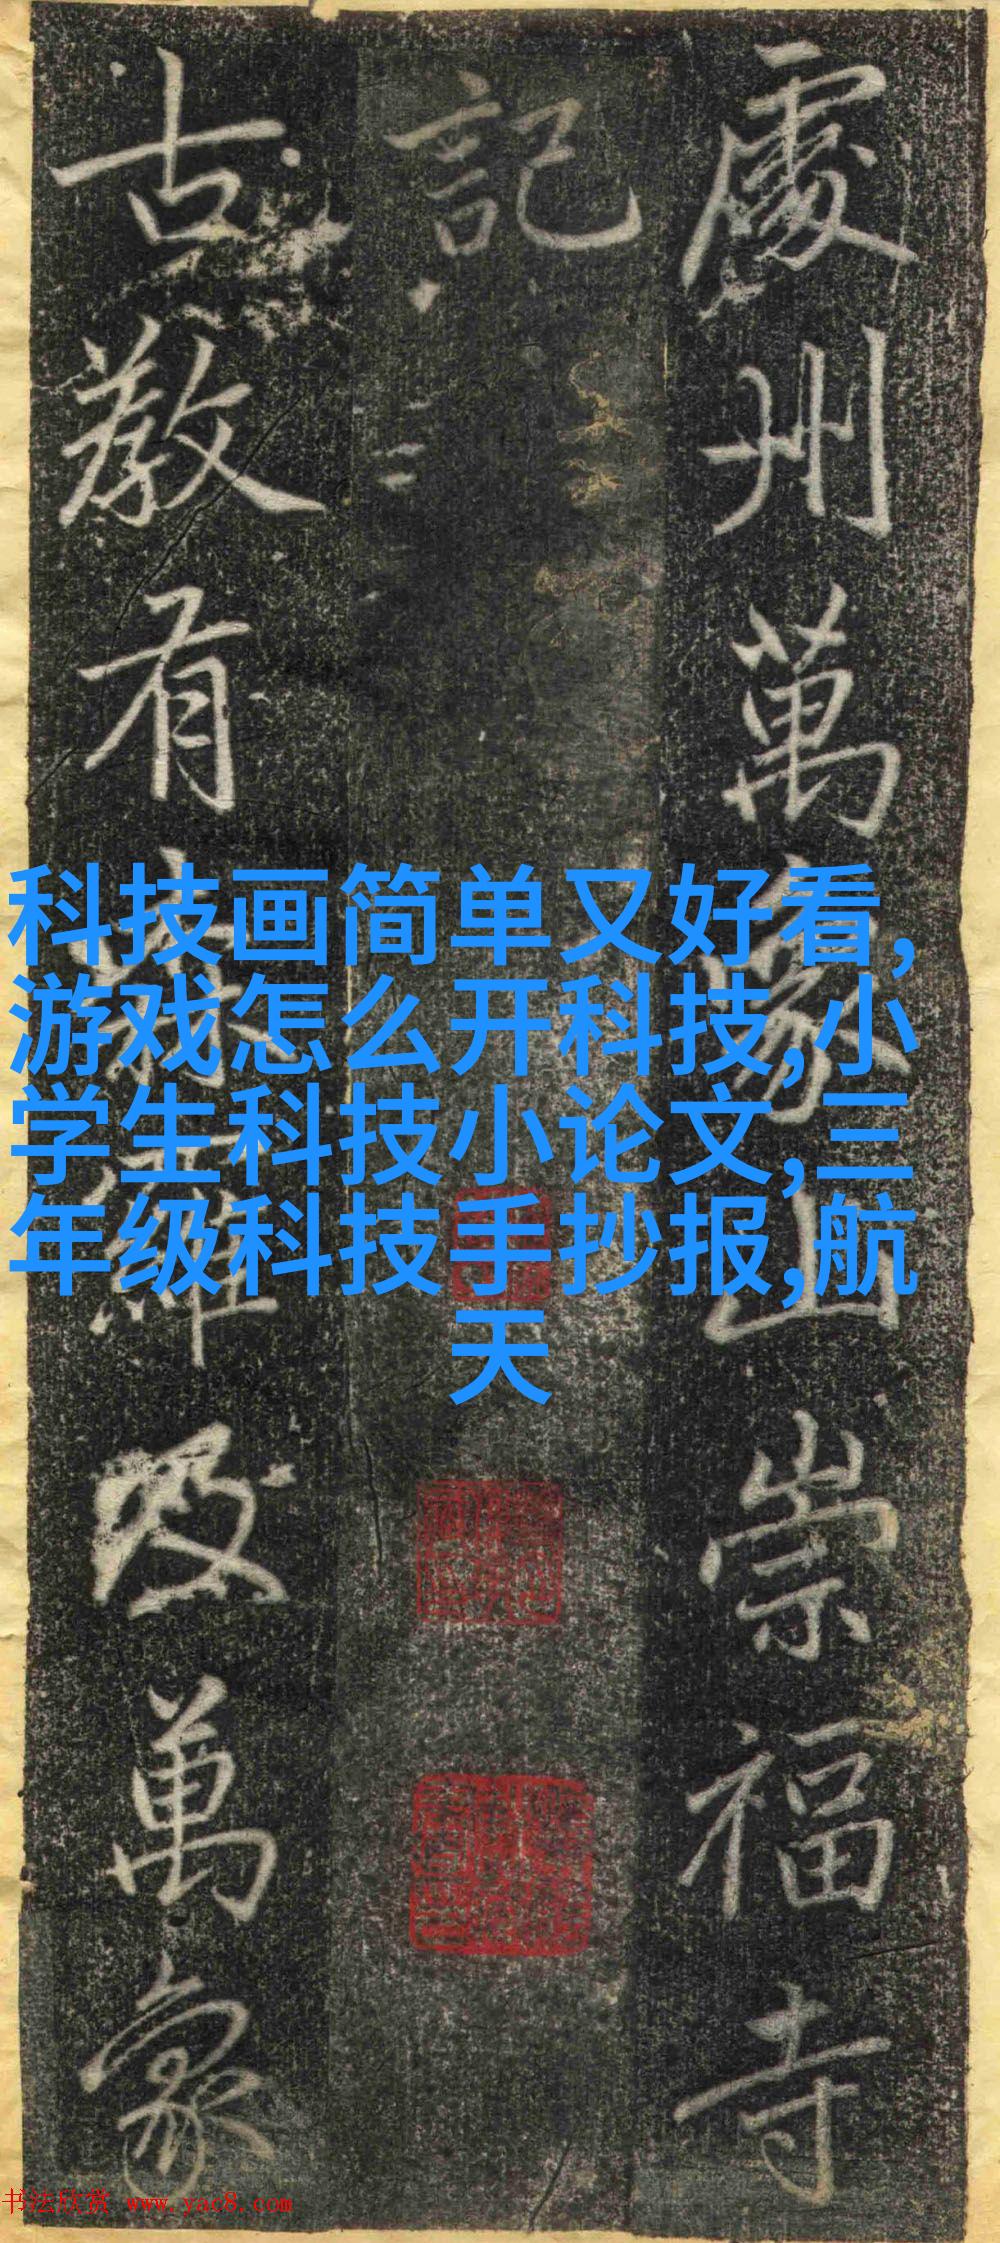 處州萬象山崇福寺
記
古教有
及萬象
科技画简单又好看,
游戏怎么开科技,小
学生科技小论文,三
年级科技手抄报,航
天
书法欣赏 www.yac8.com